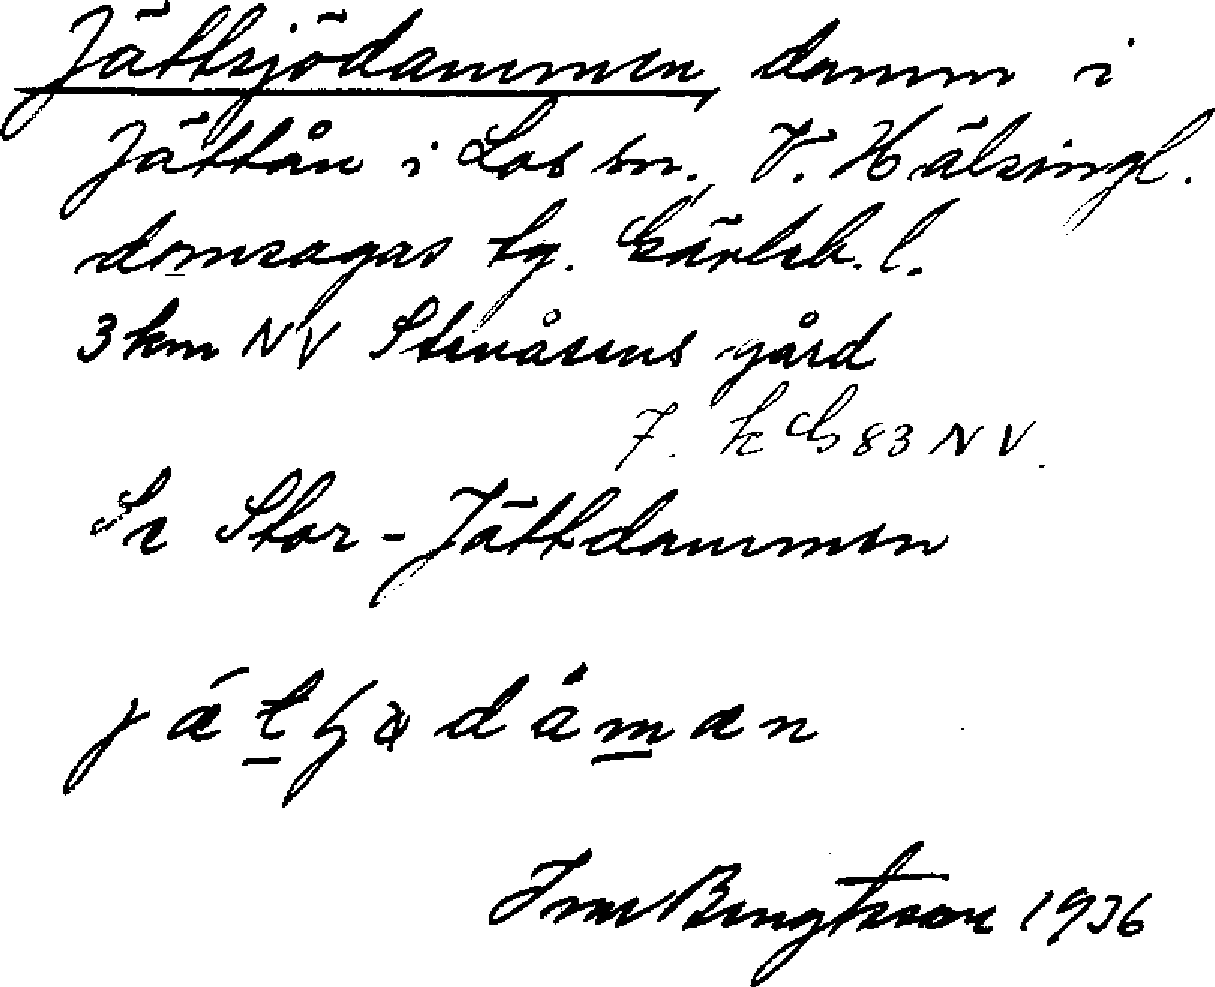 Jättsjödammen, damm i
Jättån i Los sn., V. Hälsingl.
domsagas tg. Gävleb. l.
3 km NV Stenåsens gård
7. k G 83 NV.
Se Stor-Jättdammen
Bengtsson 1936